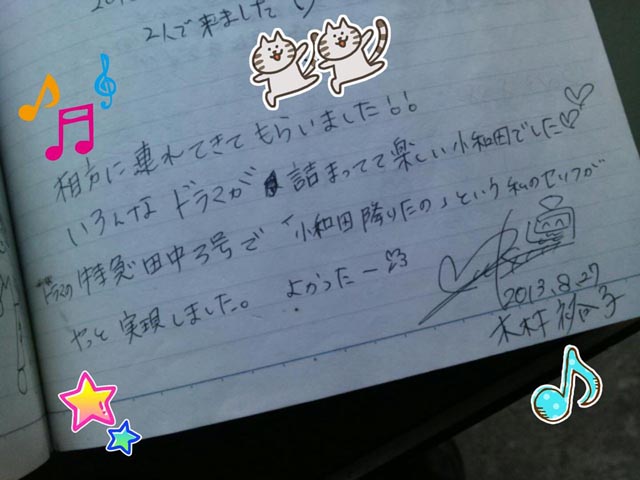 201
2人で来ました
相方に連れてきてもらいました!!
いろんなドラマが詰まってて楽しい小和田でした♡♡
ドラマの特急田中3号で「小和田降りたの」という私のセリフが
やっと実現しました。 よかったー
2013.8.27
木村裕子